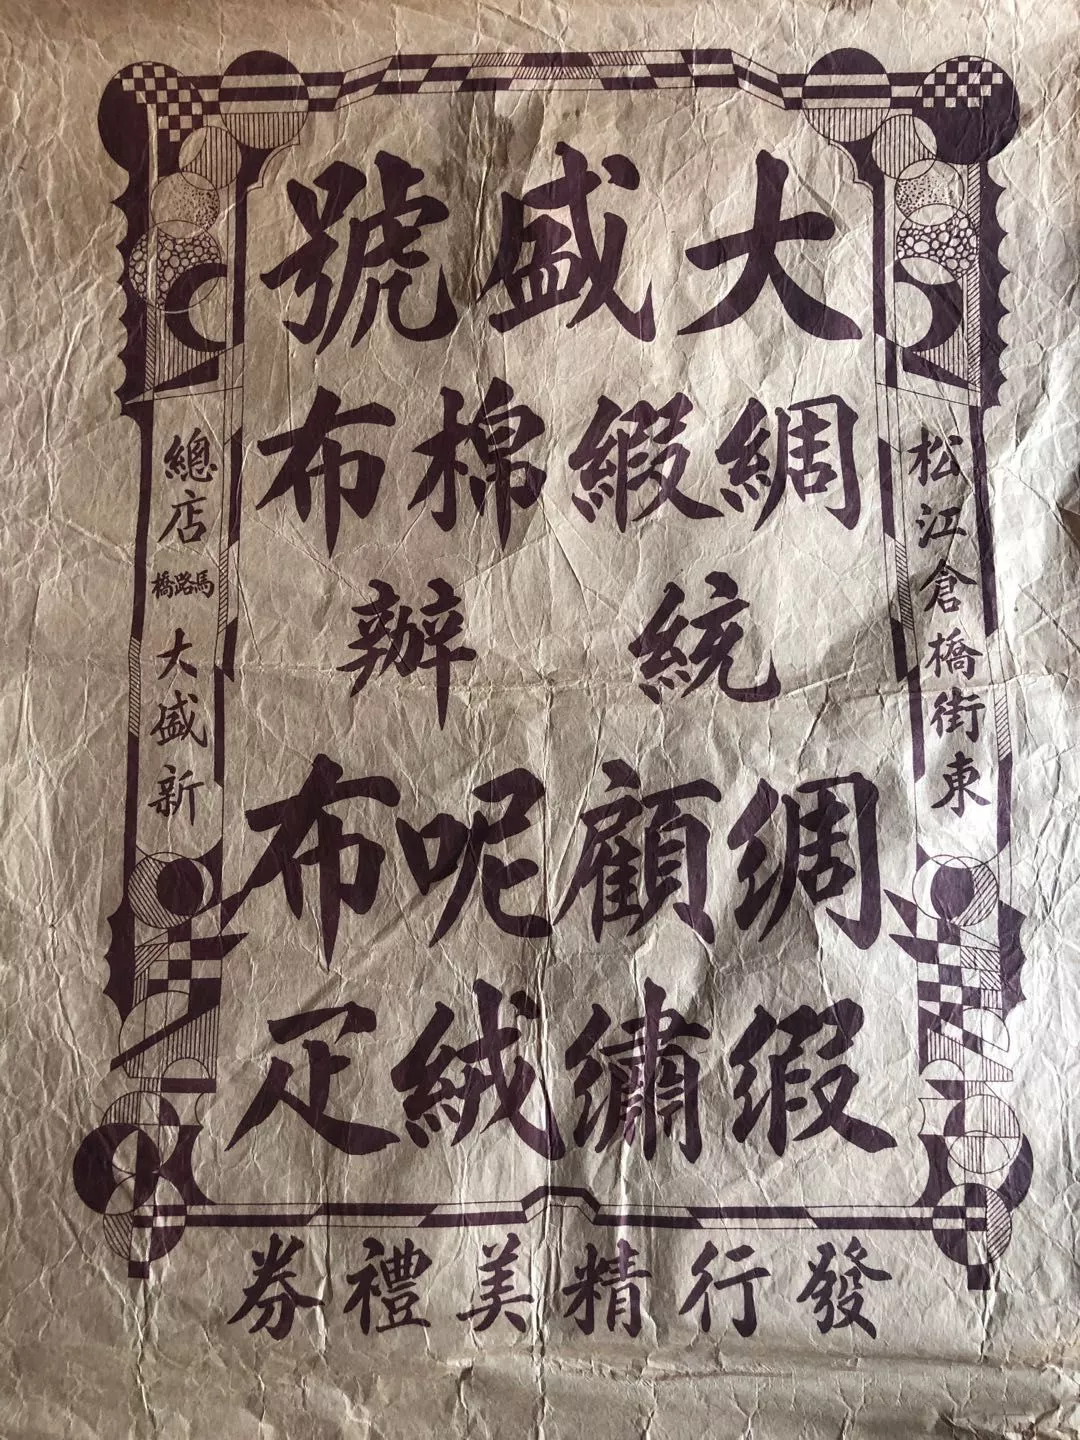 大盛號
綢緞棉布
統辦
綢顧呢布
緞繡絨疋
松江倉橋街東
總店馬路橋大盛新
發行精美禮券